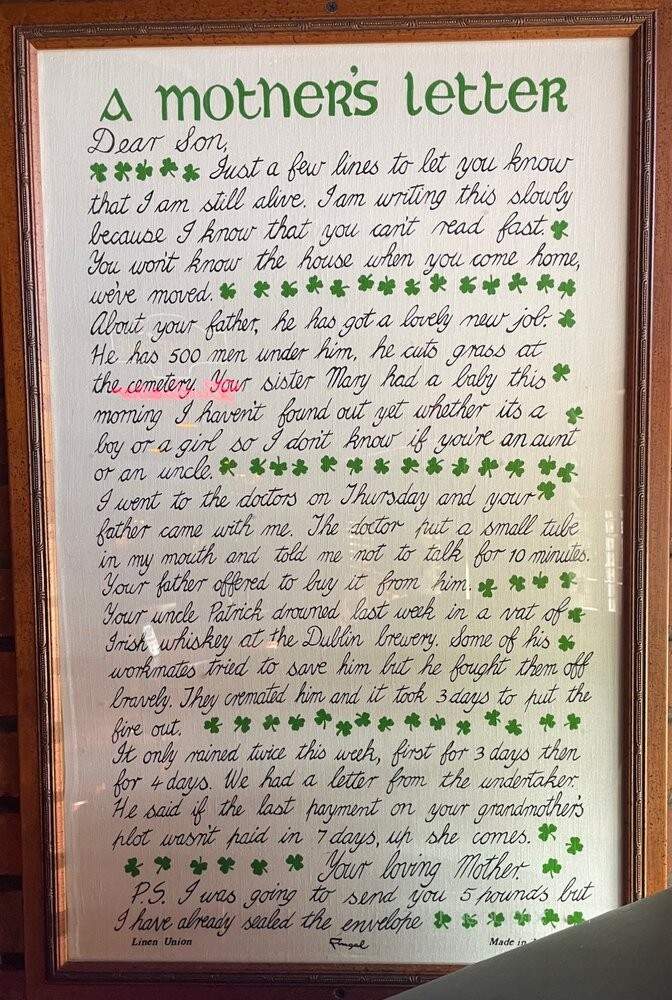 a mother's letter
Dear Son,
Just a few lines to let you know
that I am still alive. I am writing this slowly
because I know that you can't read fast.
You won't know the house when you come home,
we've moved.
About your father, he has got a lovely new job.
He has 500 men under him, he cuts grass at
the cemetery. Your sister Mary had a baby this
morning I haven't found out yet whether its a
boy or a girl so I don't know if you're an aunt
or an uncle.
I went to the doctors on Thursday and your
father came with me. The doctor put a small tube
in my mouth and told me not to talk for 10 minutes.
Your father offered to buy it from him.
Your uncle Patrick drowned last week in a vat of
Irish whiskey at the Dublin brewery. Some of his
workmates tried to save him but he fought them off
bravely. They cremated him and it took 3 days to put the
fire out.
It only rained twice this week, first for 3 days then
for 4 days. We had a letter from the undertaker.
He said if the last payment on your grandmother's
plot wasn't paid in 7 days, up she comes.
Your loving Mother.
P.S. I was going to send you 5 pounds but
I have already sealed the envelope
Linen Union
Made in